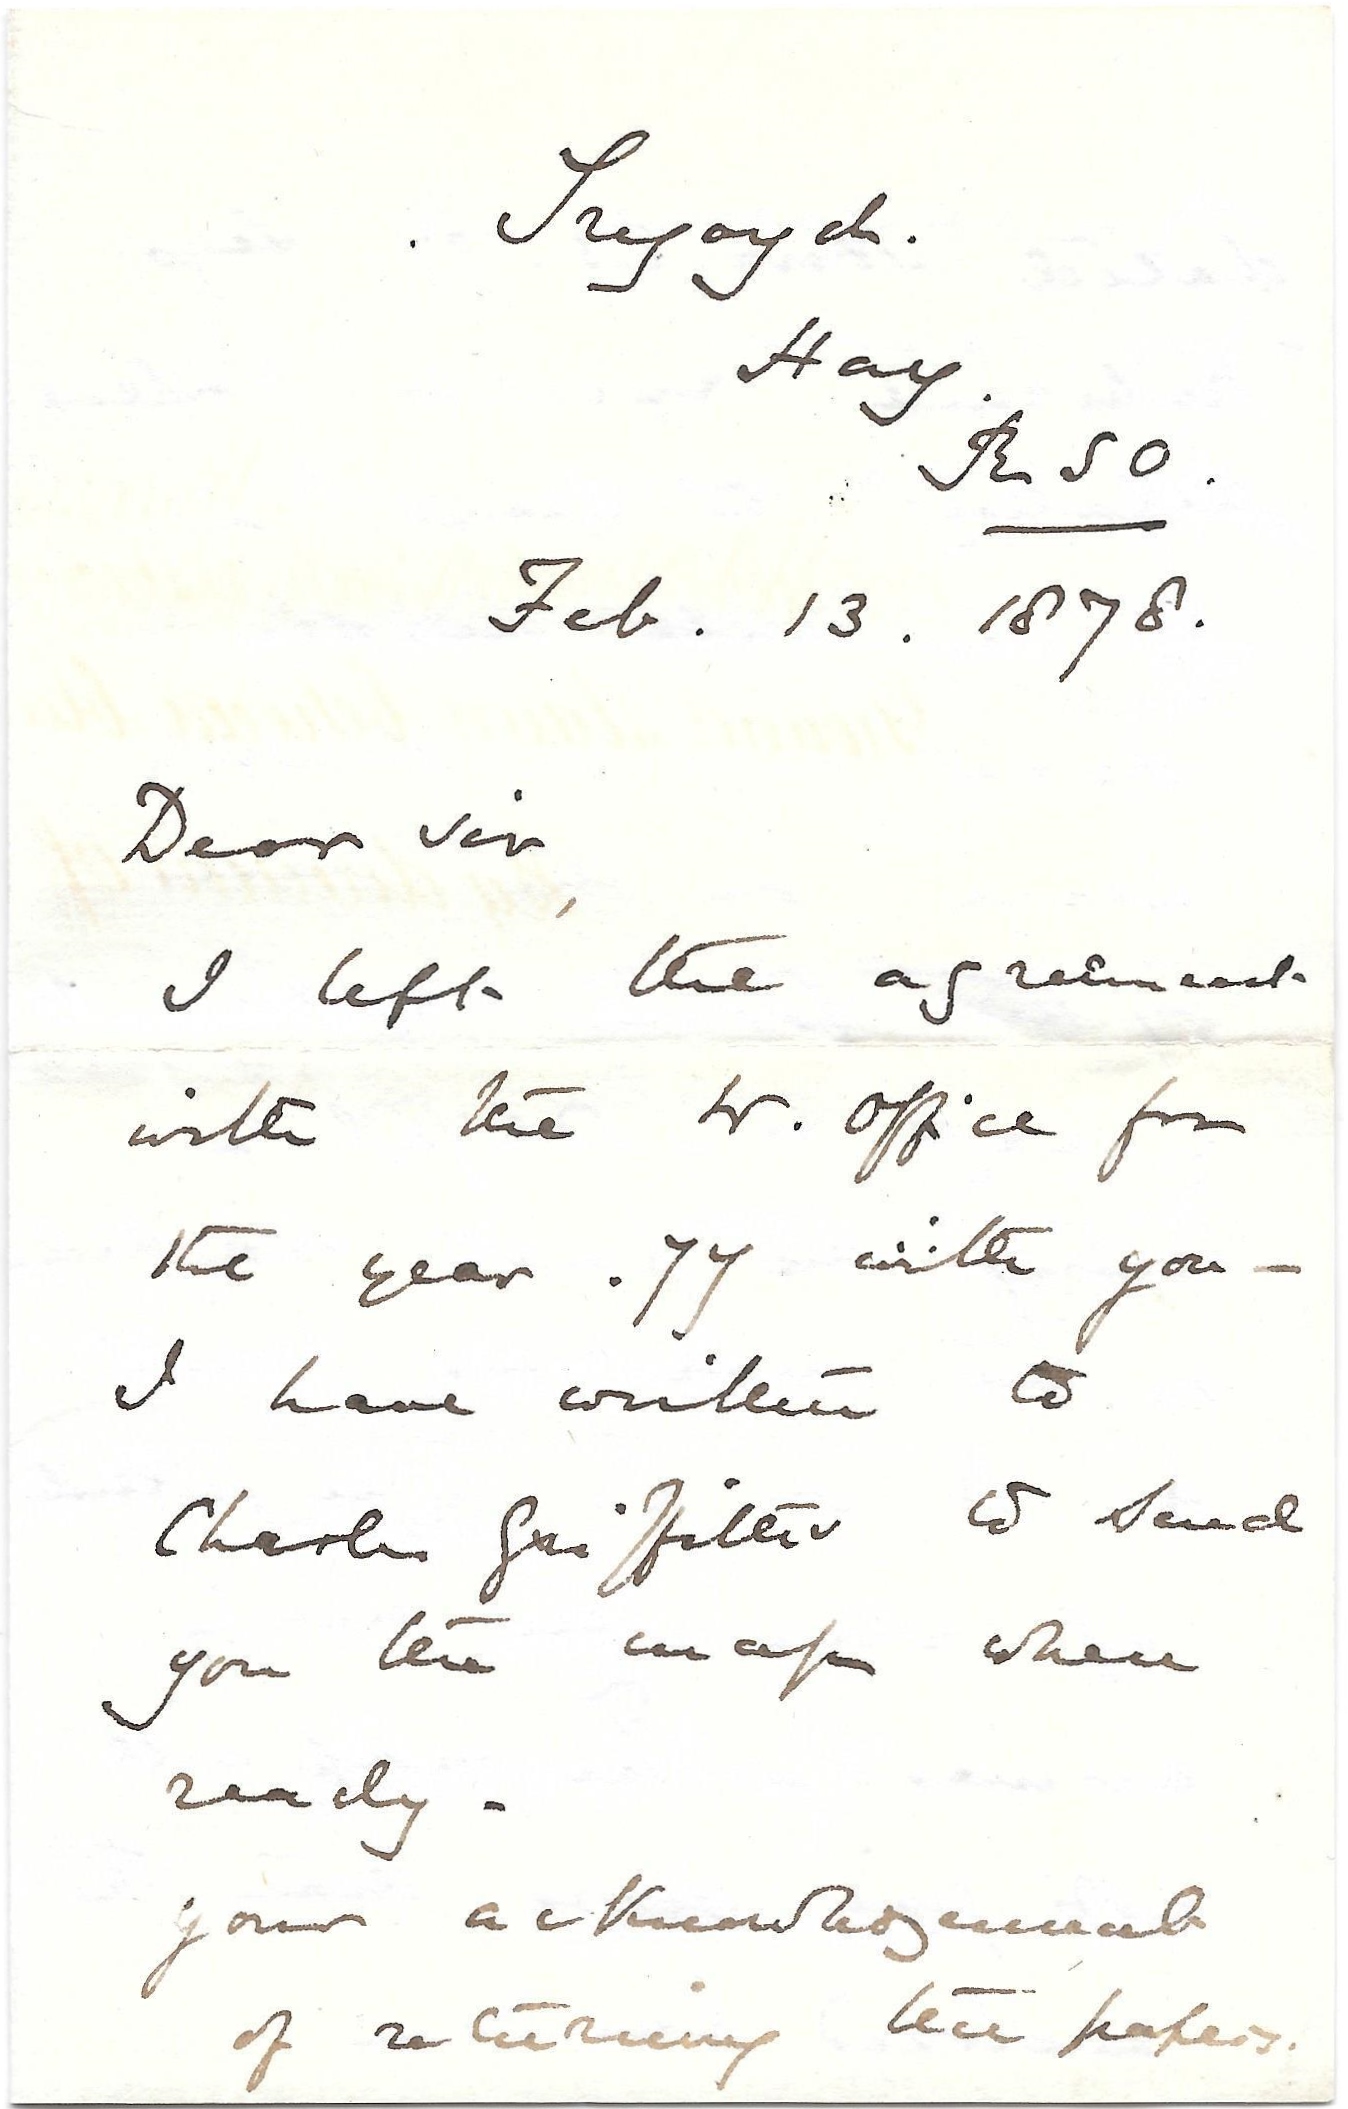 Tregoyd.
Hay.
R S O.
Feb. 13. 1878.
Dear Sir,
I left the agreement
with the W. Office for
the year .77 with you -
I have written to
Charles Griffiths to send
you the map when
ready -
your acknowledgement
of returning the papers.